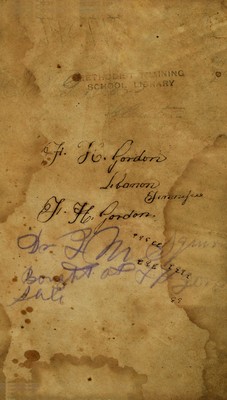 METHODIST TRAINING
SCHOOL LIBRARY
F. H. Gordon
Lebanon
Tennessee
F. H. Gordon
Dr F M
Bought at
Sale